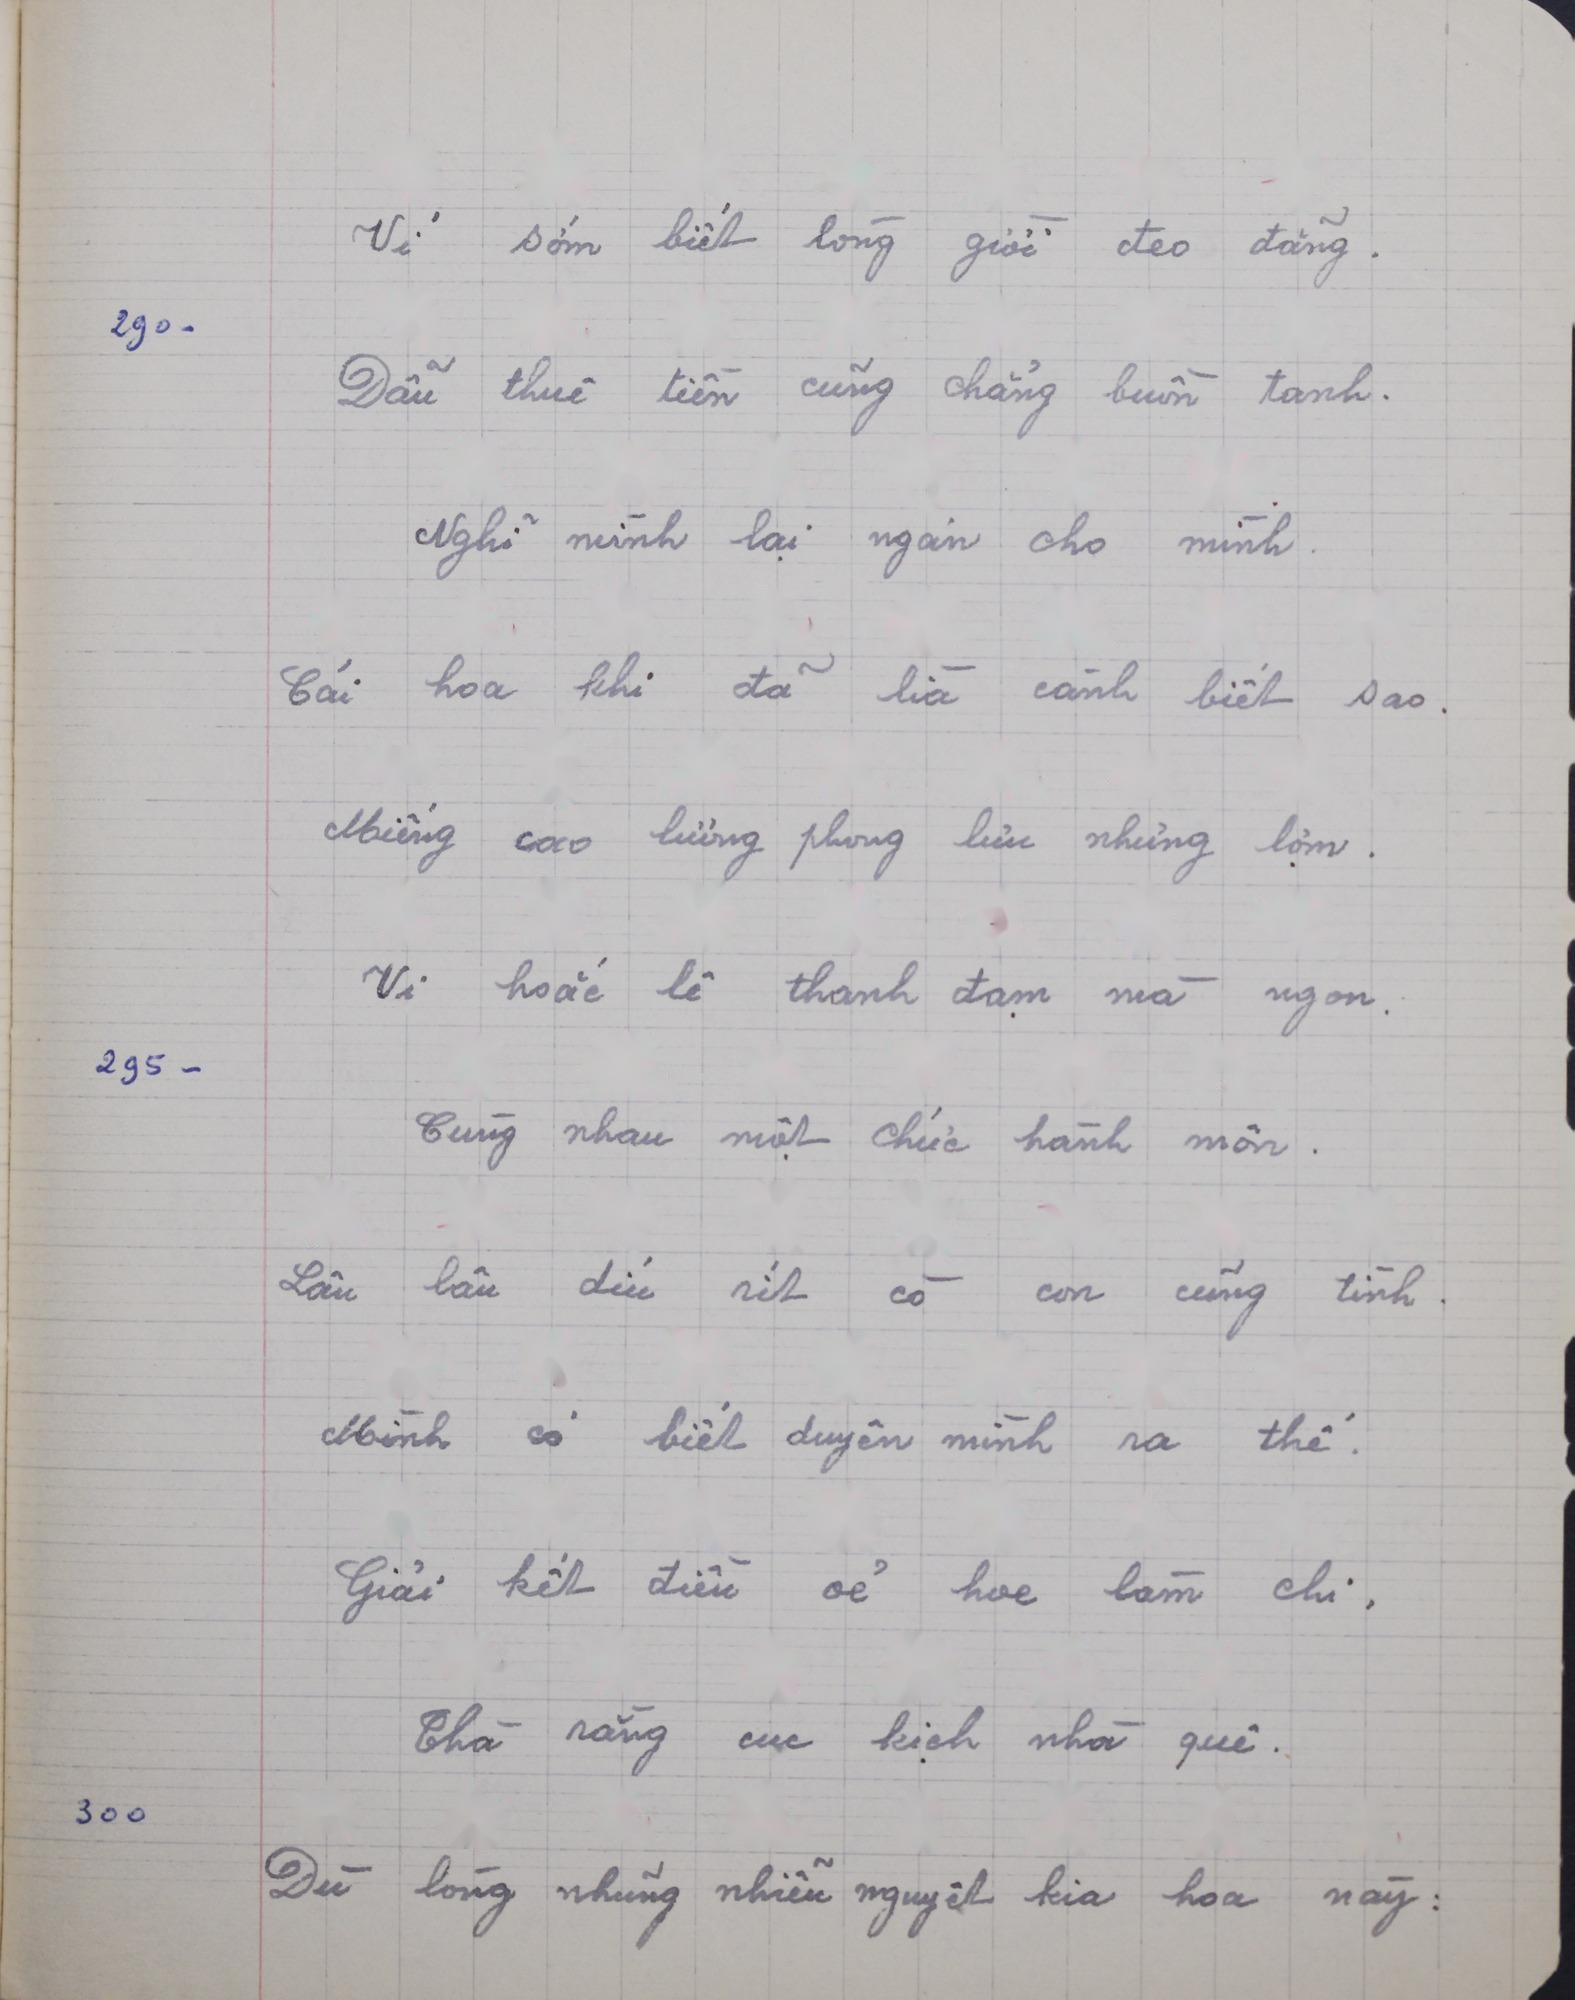 Ví sớm biết lòng giời đeo đẵng.
290-
Dẫu thuê tiền cũng chẳng buồn tanh.
Nghĩ mình lại ngán cho mình.
Cái hoa khi đã lìa cành biết sao.
Miếng cao lương phong lưu nhưng lợm.
Vi hoắc lê thanh đạm mà ngon.
295-
Cùng nhau một chức hành môn.
Lâu lâu díu rít cò con cũng tình.
Mình có biết duyên mình ra thế.
Giải kết điều oẻ hoe làm chi.
Thà rằng cuc kịch nhà quê.
300
Dù lòng nhũng nhiễu nguyệt kia hoa này: